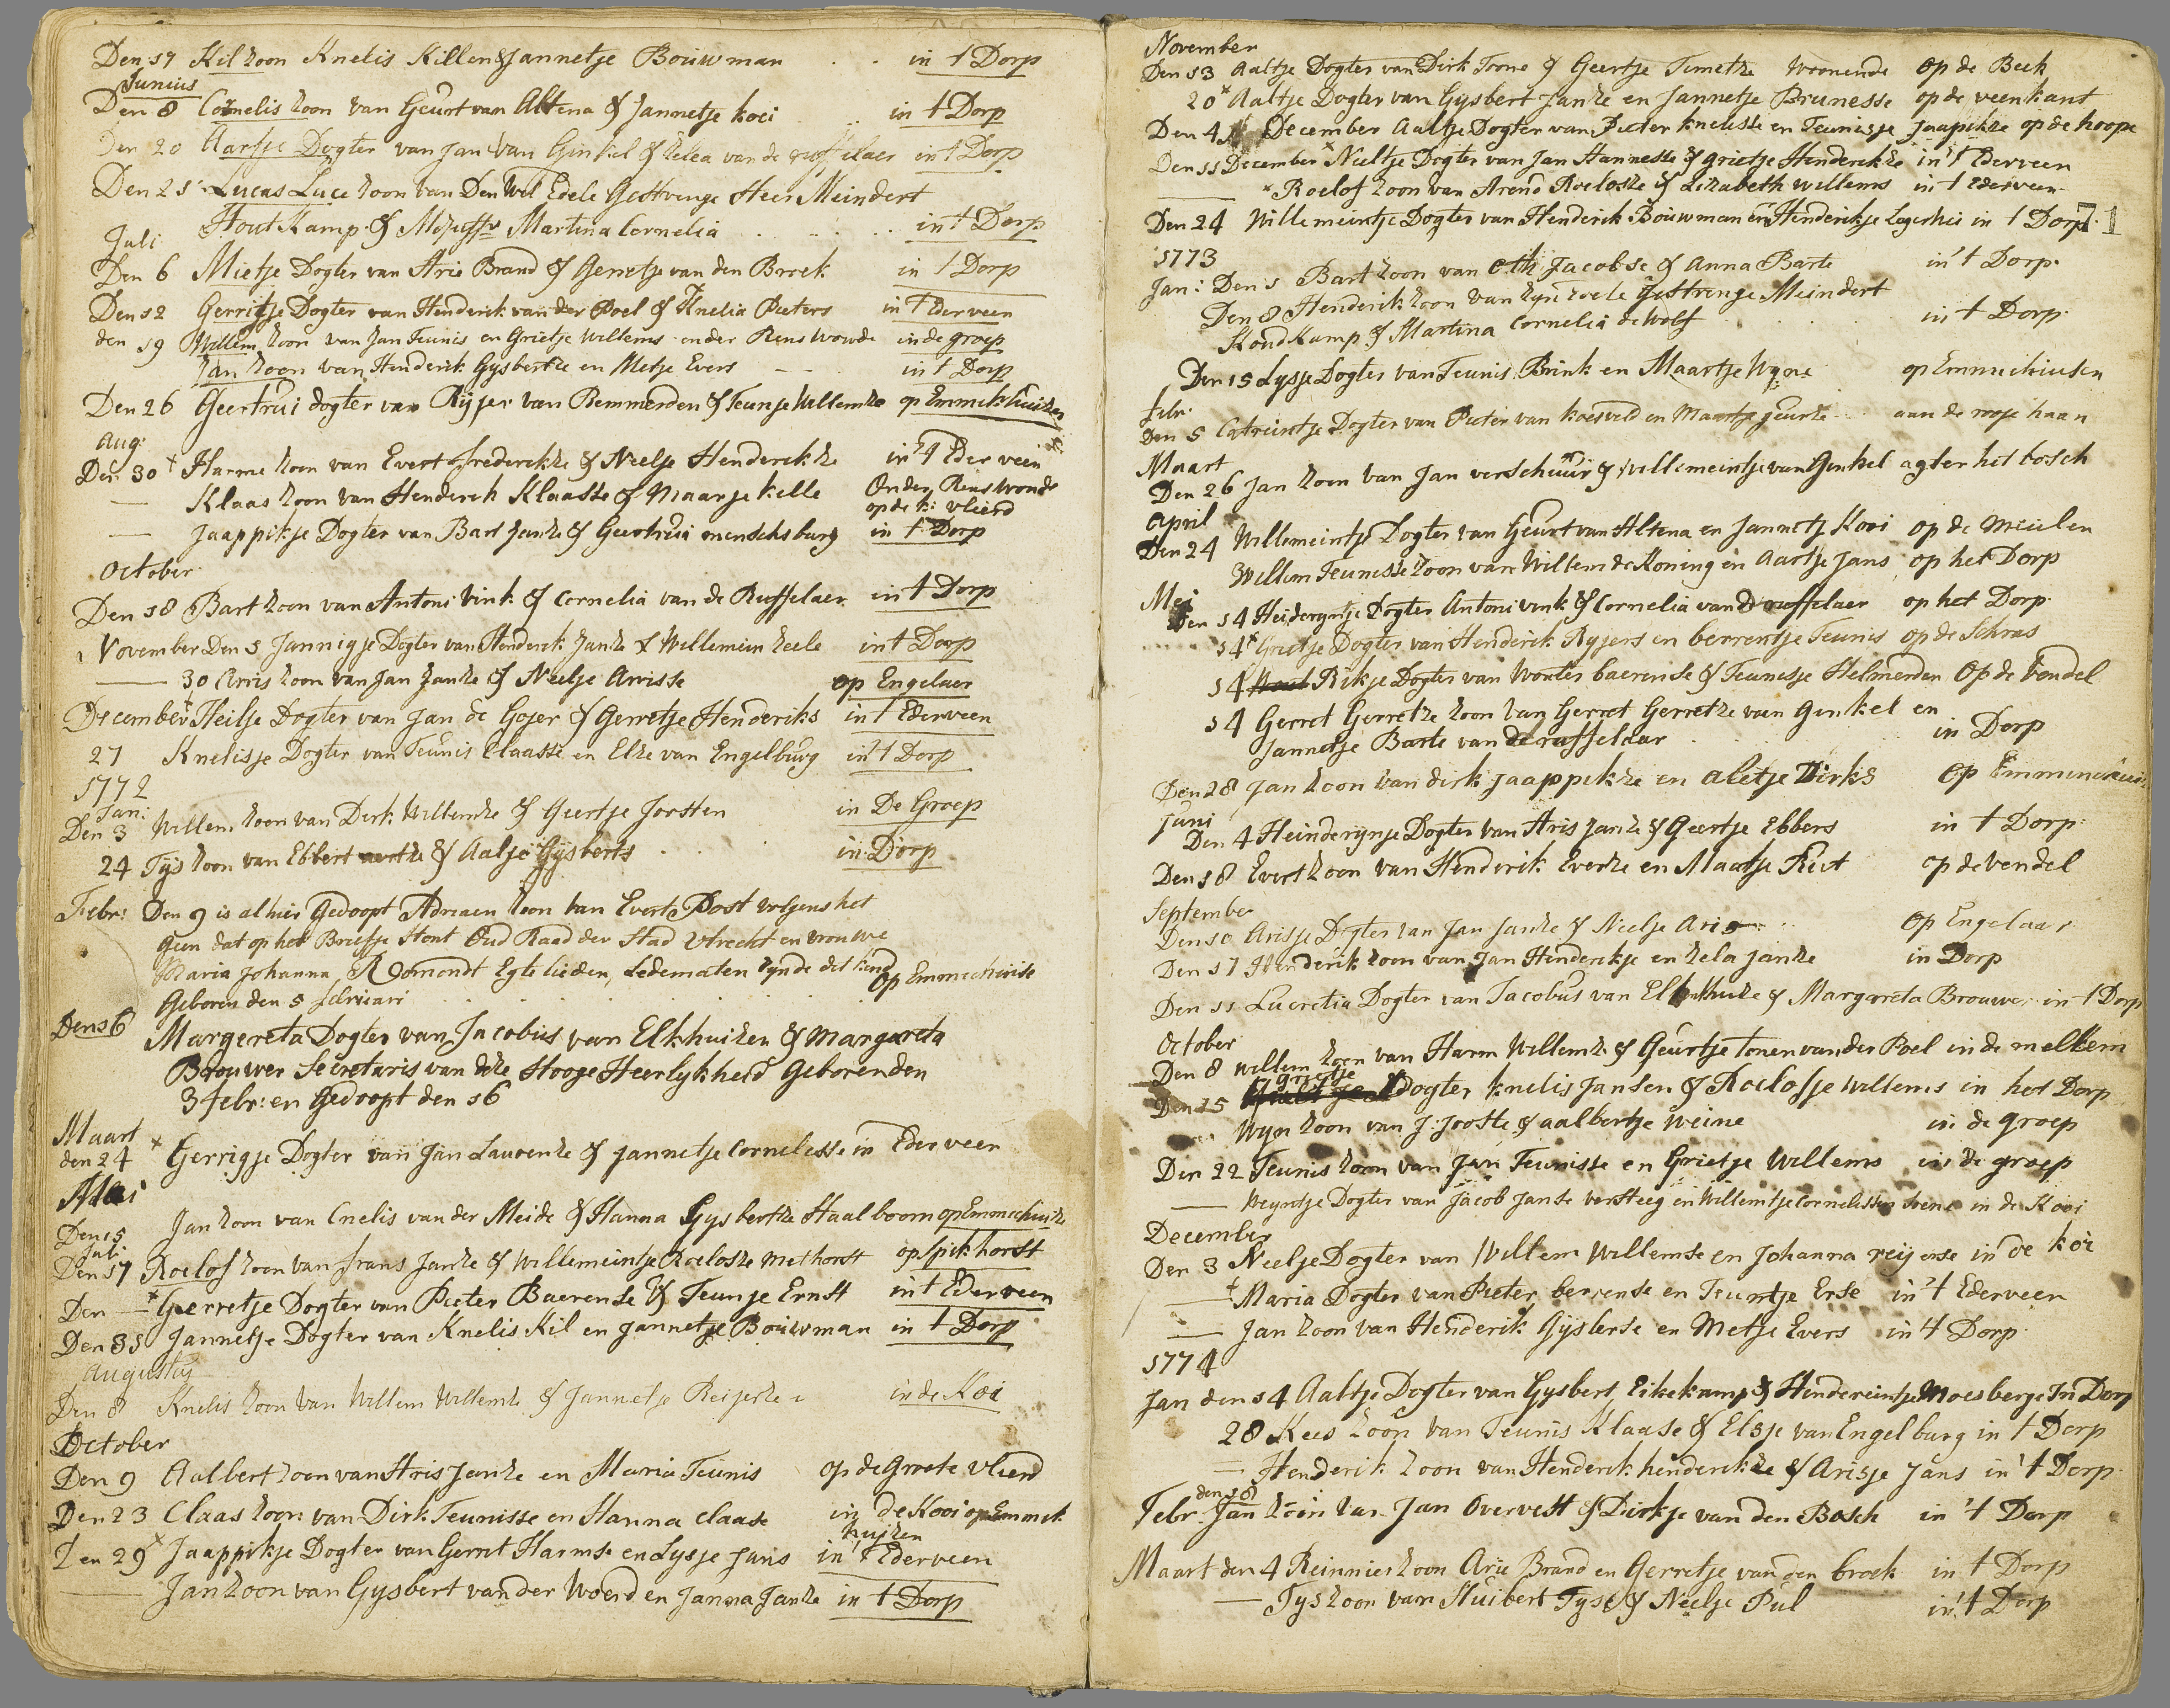 Den 17 Kil zoon Knelis Killen & Jannetje Bouwman in t Dorp
Junius
Den 8 Cornelis zoon van Geurt van Altena & Jannetje koei in t Dorp
Den 20 Aartje Dogter van Jan van Ginkel & Zelea van de ruffelaer in t Dorp
Den 21 Lucas Luce zoon van Den Wel Edele Gestrenge Heer Meindert
Hout Kamp & Mejuffr Martina Cornelia in t Dorp
Juli
Den 6 Mietje Dogter van Arie Brand & Gerretje van den Broek in t Dorp
Den 12 Gerritje Dogter van Henderik van der Poel & Knelia Pieters in t Ederveen
den 19 Willem zoon van Jan Teunis en Grietje Willems onder Renswoude in de groep
Jan zoon van Henderik Gysbertze en Metje Evers in t Dorp
Den 26 Geertrui dogter van Ryjer van Remmerden & Teunje Willemze op Emmekhuizen
Aug:
Den 30 + Harme zoon van Evert frederikze & Neelje Henderikze in 't Ederveen
— Klaas zoon van Henderik Klaasse & Maarje kelle Onder Renswoude
op de k: vliend
— Jaappikje Dogter van Bart Janze & Geertruia menschsburg in t Dorp
October
Den 18 Bart zoon van Antoni Vink & Cornelia van de Ruffelaer in t Dorp
November Den 1 Jannigje Dogter van Henderik Janze & Willemein zeele in t Dorp
— 30 Arris zoon van Jan Janze & Neelje Arrisse op Engelaer
December + Heilje Dogter van Jan de Gojer & Gerretje Henderiks in t Ederveen
27 Knelisje Dogter van Teunis Claasse en Elze van Engelburg in 't Dorp
1772
Jan:
Den 3 Willem zoon van Derk Willemze & Geertje Joosten in De Groep
24 Tijs zoon van Ebbert aartze & Aaltje Gijsberts in Dorp
Febr: Den 9 is alhier Gedoopt Adriaen zoon van Evert Post volgens het
geen dat op het Briefje stont Oud Raad der Stad Utrecht en vrouwe
Maria Johanna Romondt Egte lieden, Ledematen zynde dit kend op Emmechuise
Geboren den 5 februari
Den 16 Margereta Dogter van Jacobus van Elkhuizen & Margareta
Brouwer Secretaris van deze Hooge Heerlykheid Geboren den
3 febr: en Gedoopt den 16
Maart
den 24 + Gerrigje Dogter van Jan Laurenze & Jannetje Cornelesse in Ederveen
Mai
Den 15 Jan zoon van Cnelis van der Meide & Hanna Gysbertze Haalboom op Emmechuize
Juli
Den 17 Roelof zoon van frans Janze & Willemeintje Roelofze Methorst op Spikhorst
Den — * Gerretje Dogter van Pieter Baerense & Teunje Ernst in t Ederveen
Den 31 Jannetje Dogter van Knelis Kil en Jannetje Bouwman in t Dorp
Augustus
Den 8 Knelis zoon van Willem Willemze & Jannetje Reijerze in de Koi
October
Den 9 Aalbert zoon van Aris Janze en Maria Teunis op de Groote vliend
Den 23 Claas zoon van Dirk Teunisse en Hanna claase in de Kooi op Emmek
huizen
Den 29 + Jaappikje Dogter van Gerret Harmse en Lysje Jans in 't Ederveen
Jan zoon van Gysbert van der Woerd en Janna Janze in t Dorp
November
Den 13 Aaltje Dogter van Dirk Toone & Geertje Timetze Woonende op de Beek
20 * Aaltje Dogter van Gysbert Janze en Jannetje Brunesse op de veenkant
Den 4 December Aaltje Dogter van Pieter knelisse en Teunisje Jaapikze op de hoope
Den 11 December * Neeltje Dogter van Jan Hannesse & grietje Henderikze in 't Ederveen
* Roelof zoon van Arend Roelofze & Lizabeth Willems in t Ederveen
Den 24 Willemeintje Dogter van Henderik Bouwman en Henderikje Lagerhei in t Dorp
71
1773
Jan: Den 1 Bart zoon van Oth Jacobse & Anna Barte in 't Dorp
Den 8 Henderik zoon van zyn Edele Gestrenge Meindert
Houdkamp & Martina Cornelia de Wolf in t Dorp
Den 15 Lysje Dogter van Teunis Brink en Maartje Wyne op Emmechiusen
febr:
Den 5 Catreintje Dogter van Pieter van koesveld en Maartje geurze aan de rooje haan
Maart
Den 26 Jan zoon van Jan verschuur & Willemeintje van Ginkel agter het bosch
April
Den 24 Willemeintje Dogter van Geurt van Altena en Jannetje Kooi op de Meulen
Willem Teunesse zoon van Willem de Koning en Aartje Jans op het Dorp
Mei
Den 14 Heideryntje Dogter Antoni vink & Cornelia van de ruffelaer op het Dorp
14 * Grietje Dogter van Henderik Ryjers en berrentje Teunis op de Schras
14 Rikje Dogter van Wouter baerense & Teunesje Helmerden Op de Vendel
14 Gerret Gerretze zoon van Gerret Gerretze van Ginkel en
Jannetje Barte van de ruffelaar in Dorp
Den 28 Jan zoon van dirk Jaappikze en aletje Dirks op
Juni
Den 4 Heinderynje Dogter van Aris Janze & Geertje Ebbers in t Dorp
Den 18 Evert zoon van Henderik Everze en Maatje Riet op de vendel
September
Den 10 Arisje Dogter van Jan Janze & Neelje Aris op Engelaar
Den 17 Henderik zoon van Jan Henderikje en zela Janze in Dorp
Den 11 Lucretia Dogter van Jacobus van Elkenhuize & Margareta Brouwer in t Dorp
October
Den 8 Willem zoon van Harm Willemze & Geurtje Tonen van der Poel in de mellem
Grietje
Den 15 Dogter knelis Jansen & Roelofje Willems in het Dorp
Wyn zoon van J: Jooste & aalbertje Weine in de groep
Den 22 Teunis zoon van Jan Teunisse en Grietje Willems in de groep
— Weyntje Dogter van Jacob Janse versteeg en Willemtje Cornelissen in de Kooi
December
Den 3 Neelje Dogter van Willem Willemse en Johanna reijense in de koi
— + Maria Dogter van Pieter berrense en Teuntje Erse in 't Ederveen
— Jan zoon van Henderik Gijsberse en Metje Evers in 't Dorp
1774
Jan den 14 Aaltje Dogter van Gysbert Eikekamp & Hendereintje Moesberge In Dorp
28 Kees zoon van Teunis Klaase & Elsje van Engelburg in t Dorp
— Henderik zoon van Henderik henderikze & Arisje Jans in 't Dorp
den 18
Febr: Jan zoon van Jan Overvest & Dirkje van den Bosch in 't Dorp
Maart den 4 Reinnier zoon Arie Brand en Gerretje van den broek in t Dorp
— Tys zoon van Huibert Tyse & Neelje Pul in 't Dorp